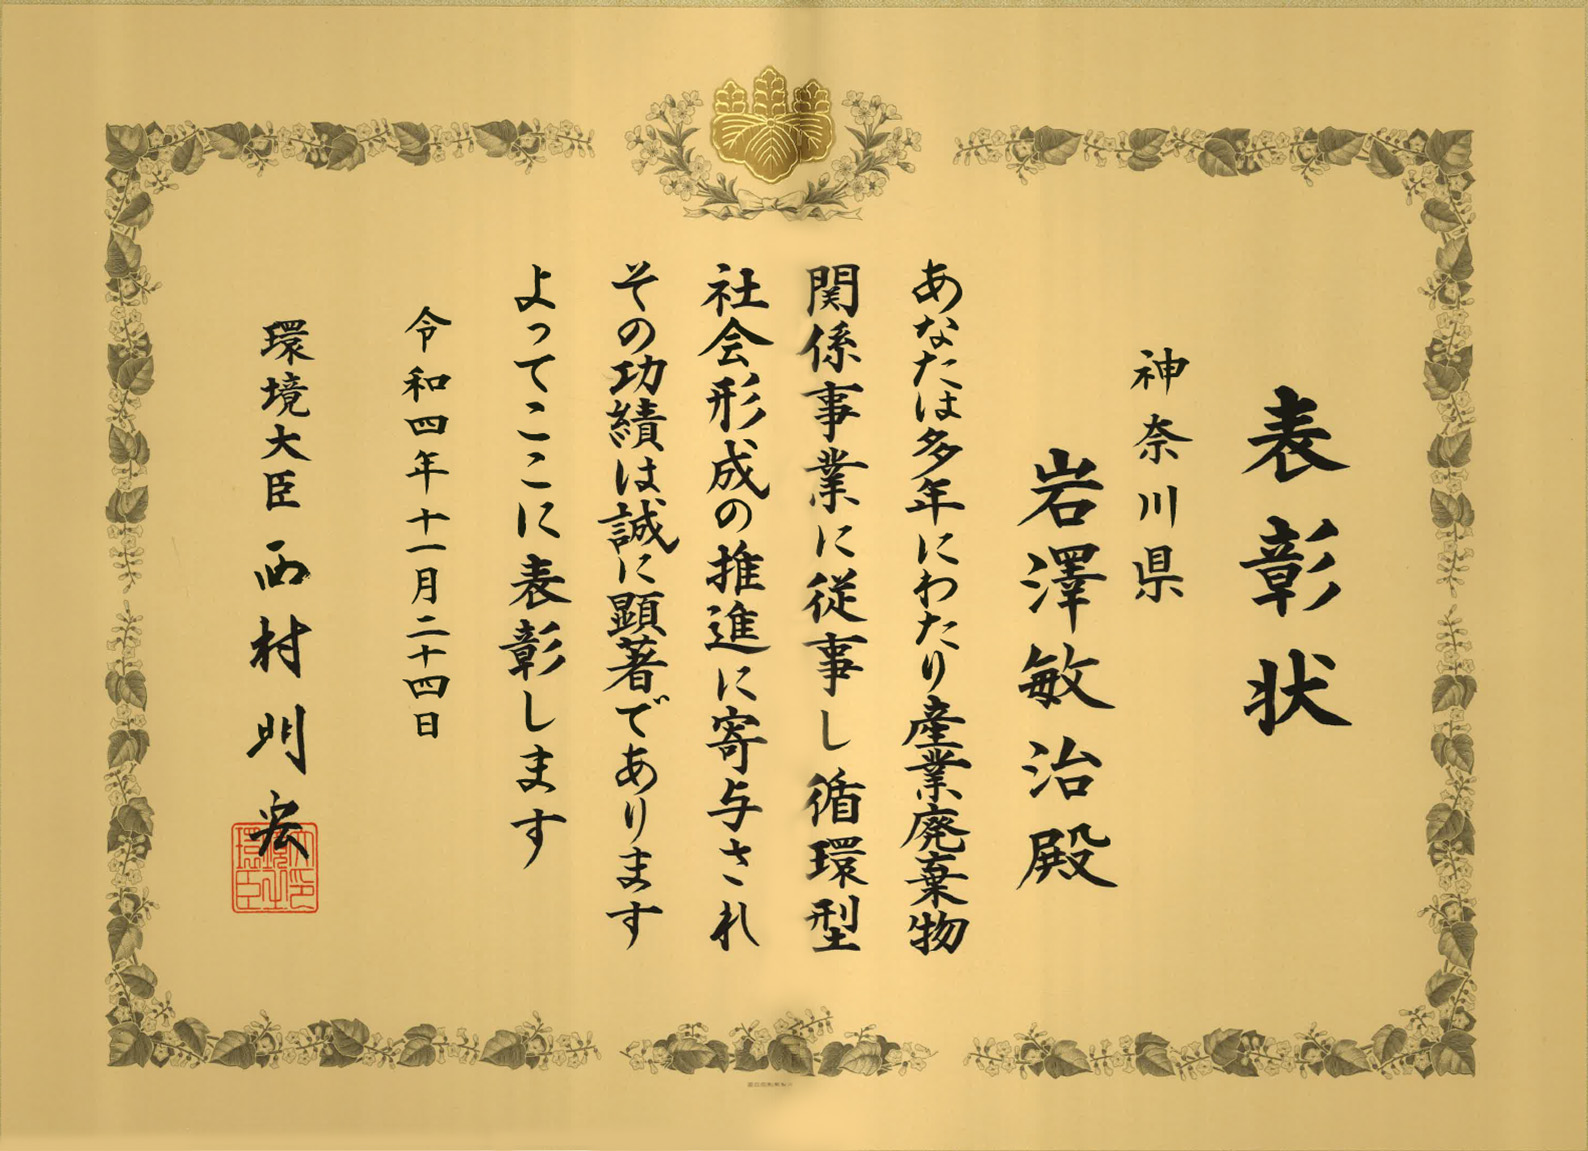 表彰状
神奈川県
岩澤敏治殿
あなたは多年にわたり産業廃棄物
関係事業に従事し循環型
社会形成の推進に寄与され
その功績は誠に顕著であります
よってここに表彰します
令和四年十一月二十四日
環境大臣 西村明宏